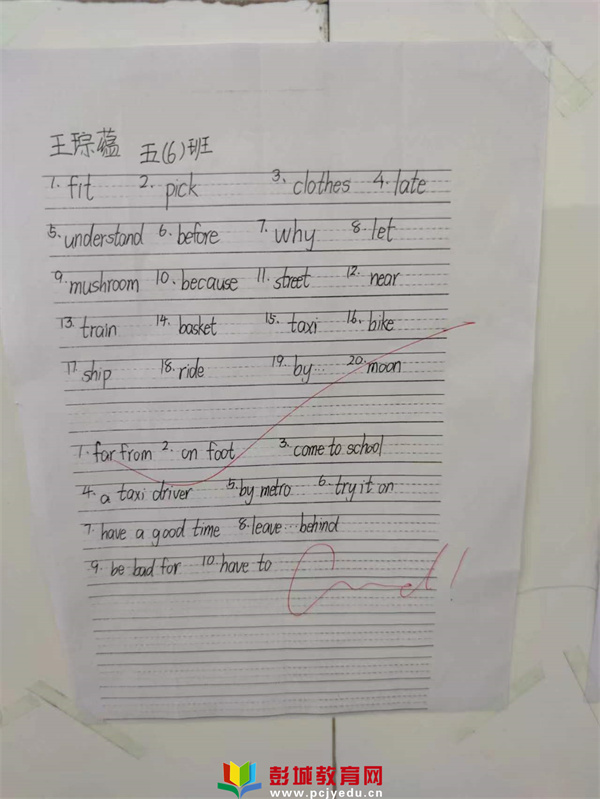 王琮蕴 五(6)班
1. fit 2. pick 3. clothes 4. late
5. understand 6. before 7. why 8. let
9. mushroom 10. because 11. street 12. near
13. train 14. basket 15. taxi 16. bike
17. ship 18. ride 19. by... 20. moon
1. far from 2. on foot 3. come to school
4. a taxi driver 5. by metro 6. try it on
7. have a good time 8. leave...behind
9. be bad for 10. have to
Good!
彭城教育网
www.pcjyedu.cn